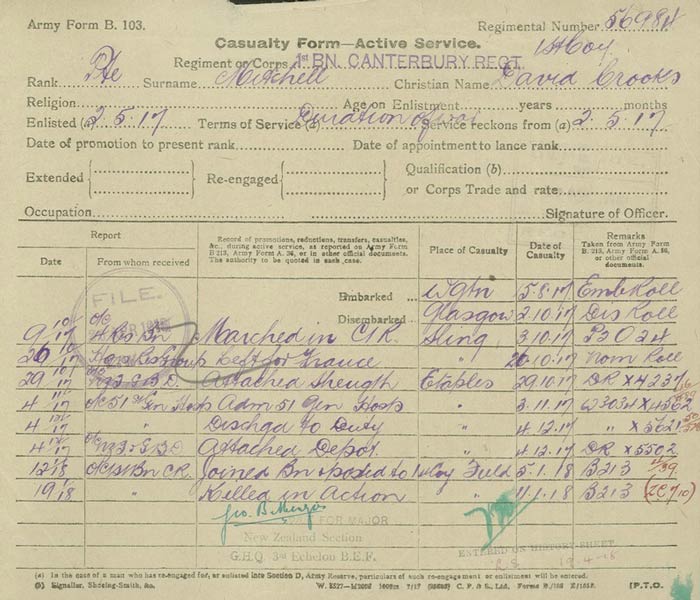 Army Form B. 103. Regimental Number 56984
Casualty Form—Active Service.
1st Coy
Regiment or Corps 1st BN. CANTERBURY REGT.
Rank Pte Surname Mitchell Christian Name David Crooks
Religion Age on Enlistment years months
Enlisted (a) 2.5.17 Terms of Service (a) Duration of war Service reckons from (a) 2.5.17
Date of promotion to present rank Date of appointment to lance rank
Extended Re-engaged Qualification (b)
or Corps Trade and rate
Occupation Signature of Officer.
Report Record of promotions, reductions, transfers, casualties, &c., during active service, as reported on Army Form B. 213, Army Form A. 36, or in other official documents. The authority to be quoted in each case. Place of Casualty Date of Casualty Remarks Taken from Army Form B. 213, Army Form A. 36, or other official documents.
Date From whom received
FILE.
Embarked Wgtn 5.8.17 Emb Roll
Disembarked Glasgow 2.10.17 Dis Roll
9 10/17 Marched in C.I.R. Sling 3.10.17 P3024
26 10/17 Left for France " 26.10.17 Nom Roll
29 10/17 Attached Strength Etaples 29.10.17 DR X4237
4 11/17 OC 51 Gen Hosp Adm 51 Gen Hosp " 3.11.17 W3034 X4562
4 12/17 " Dischgd to Duty " 4.12.17 " X5621
4 12/17 Attached Depot " 4.12.17 DR X5502
12 1/18 OC 1st Bn C.R. Joined Bn & posted to 1st Coy Field 5.1.18 B213
19 1/18 " Killed in Action " 11.1.18 B213
FOR MAJOR
New Zealand Section
G.H.Q. 3rd Echelon B.E.F.
ENTERED ON HISTORY-SHEET
19-4-18
(a) In the case of a man who has re-engaged for, or enlisted into Section D, Army Reserve, particulars of such re-engagement or enlistment will be entered.
(b) Signaller, Shoeing-Smith, &c. [P.T.O.